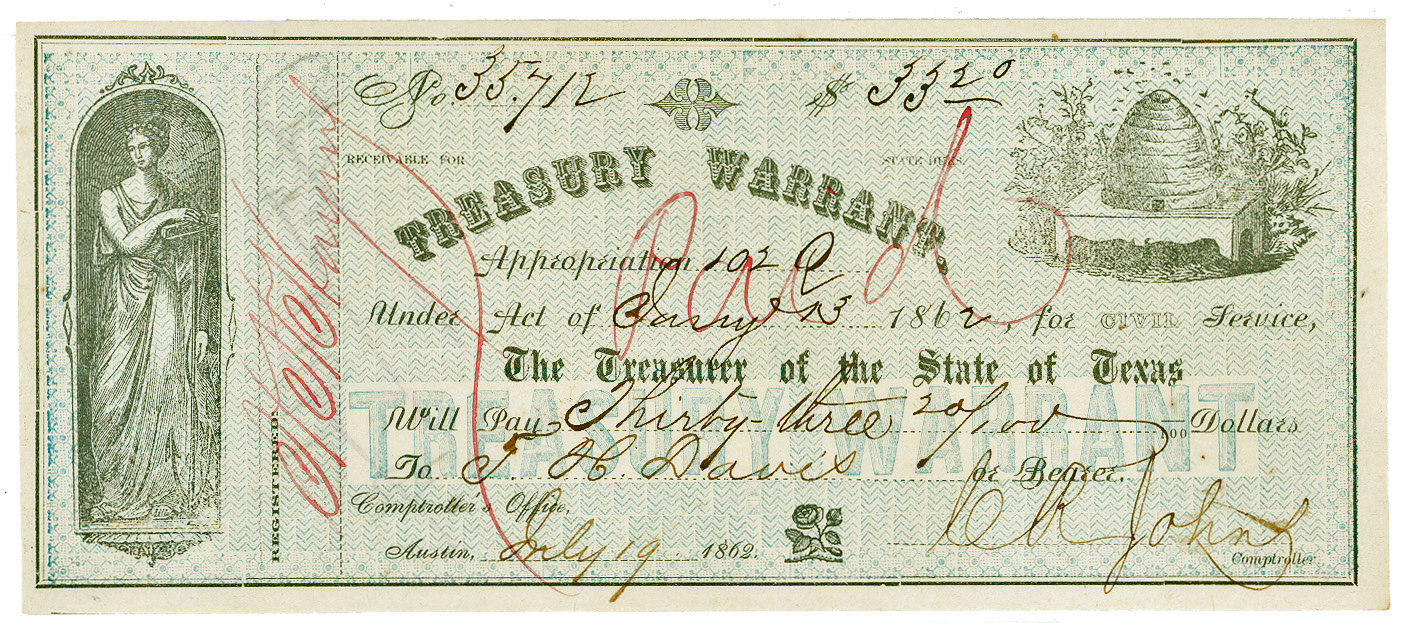 No. 35.712 $ 33 20
RECEIVABLE FOR STATE DUES.
TREASURY WARRANT.
Paid
Appropriation 102
Under Act of 13 1862, for CIVIL Service,
The Treasurer of the State of Texas
TREASURY WARRANT
Will Pay Thirty-three 20/100 /100 Dollars
To J. H. Davis or Bearer.
Comptroller's Office,
Austin, July 19 1862.
C R Johns
Comptroller.
REGISTERED: